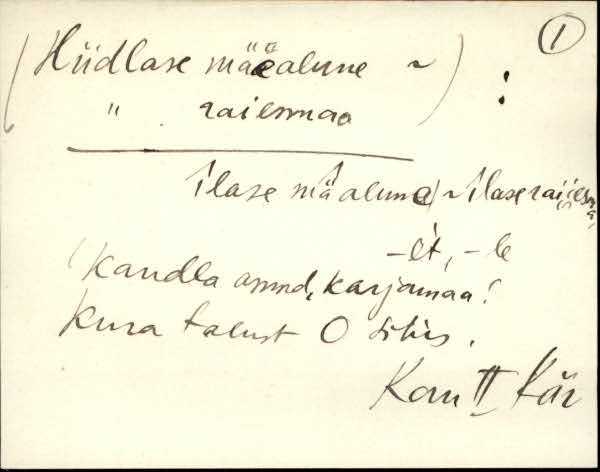 ①
(Hiidlase mäealune ~) :
" raiesmaa
Ilase mäalune ~ Ilase raiesma
-et, -le
Kandla asund, karjamaa!
Kura talust O sihis.
Koru II Kär